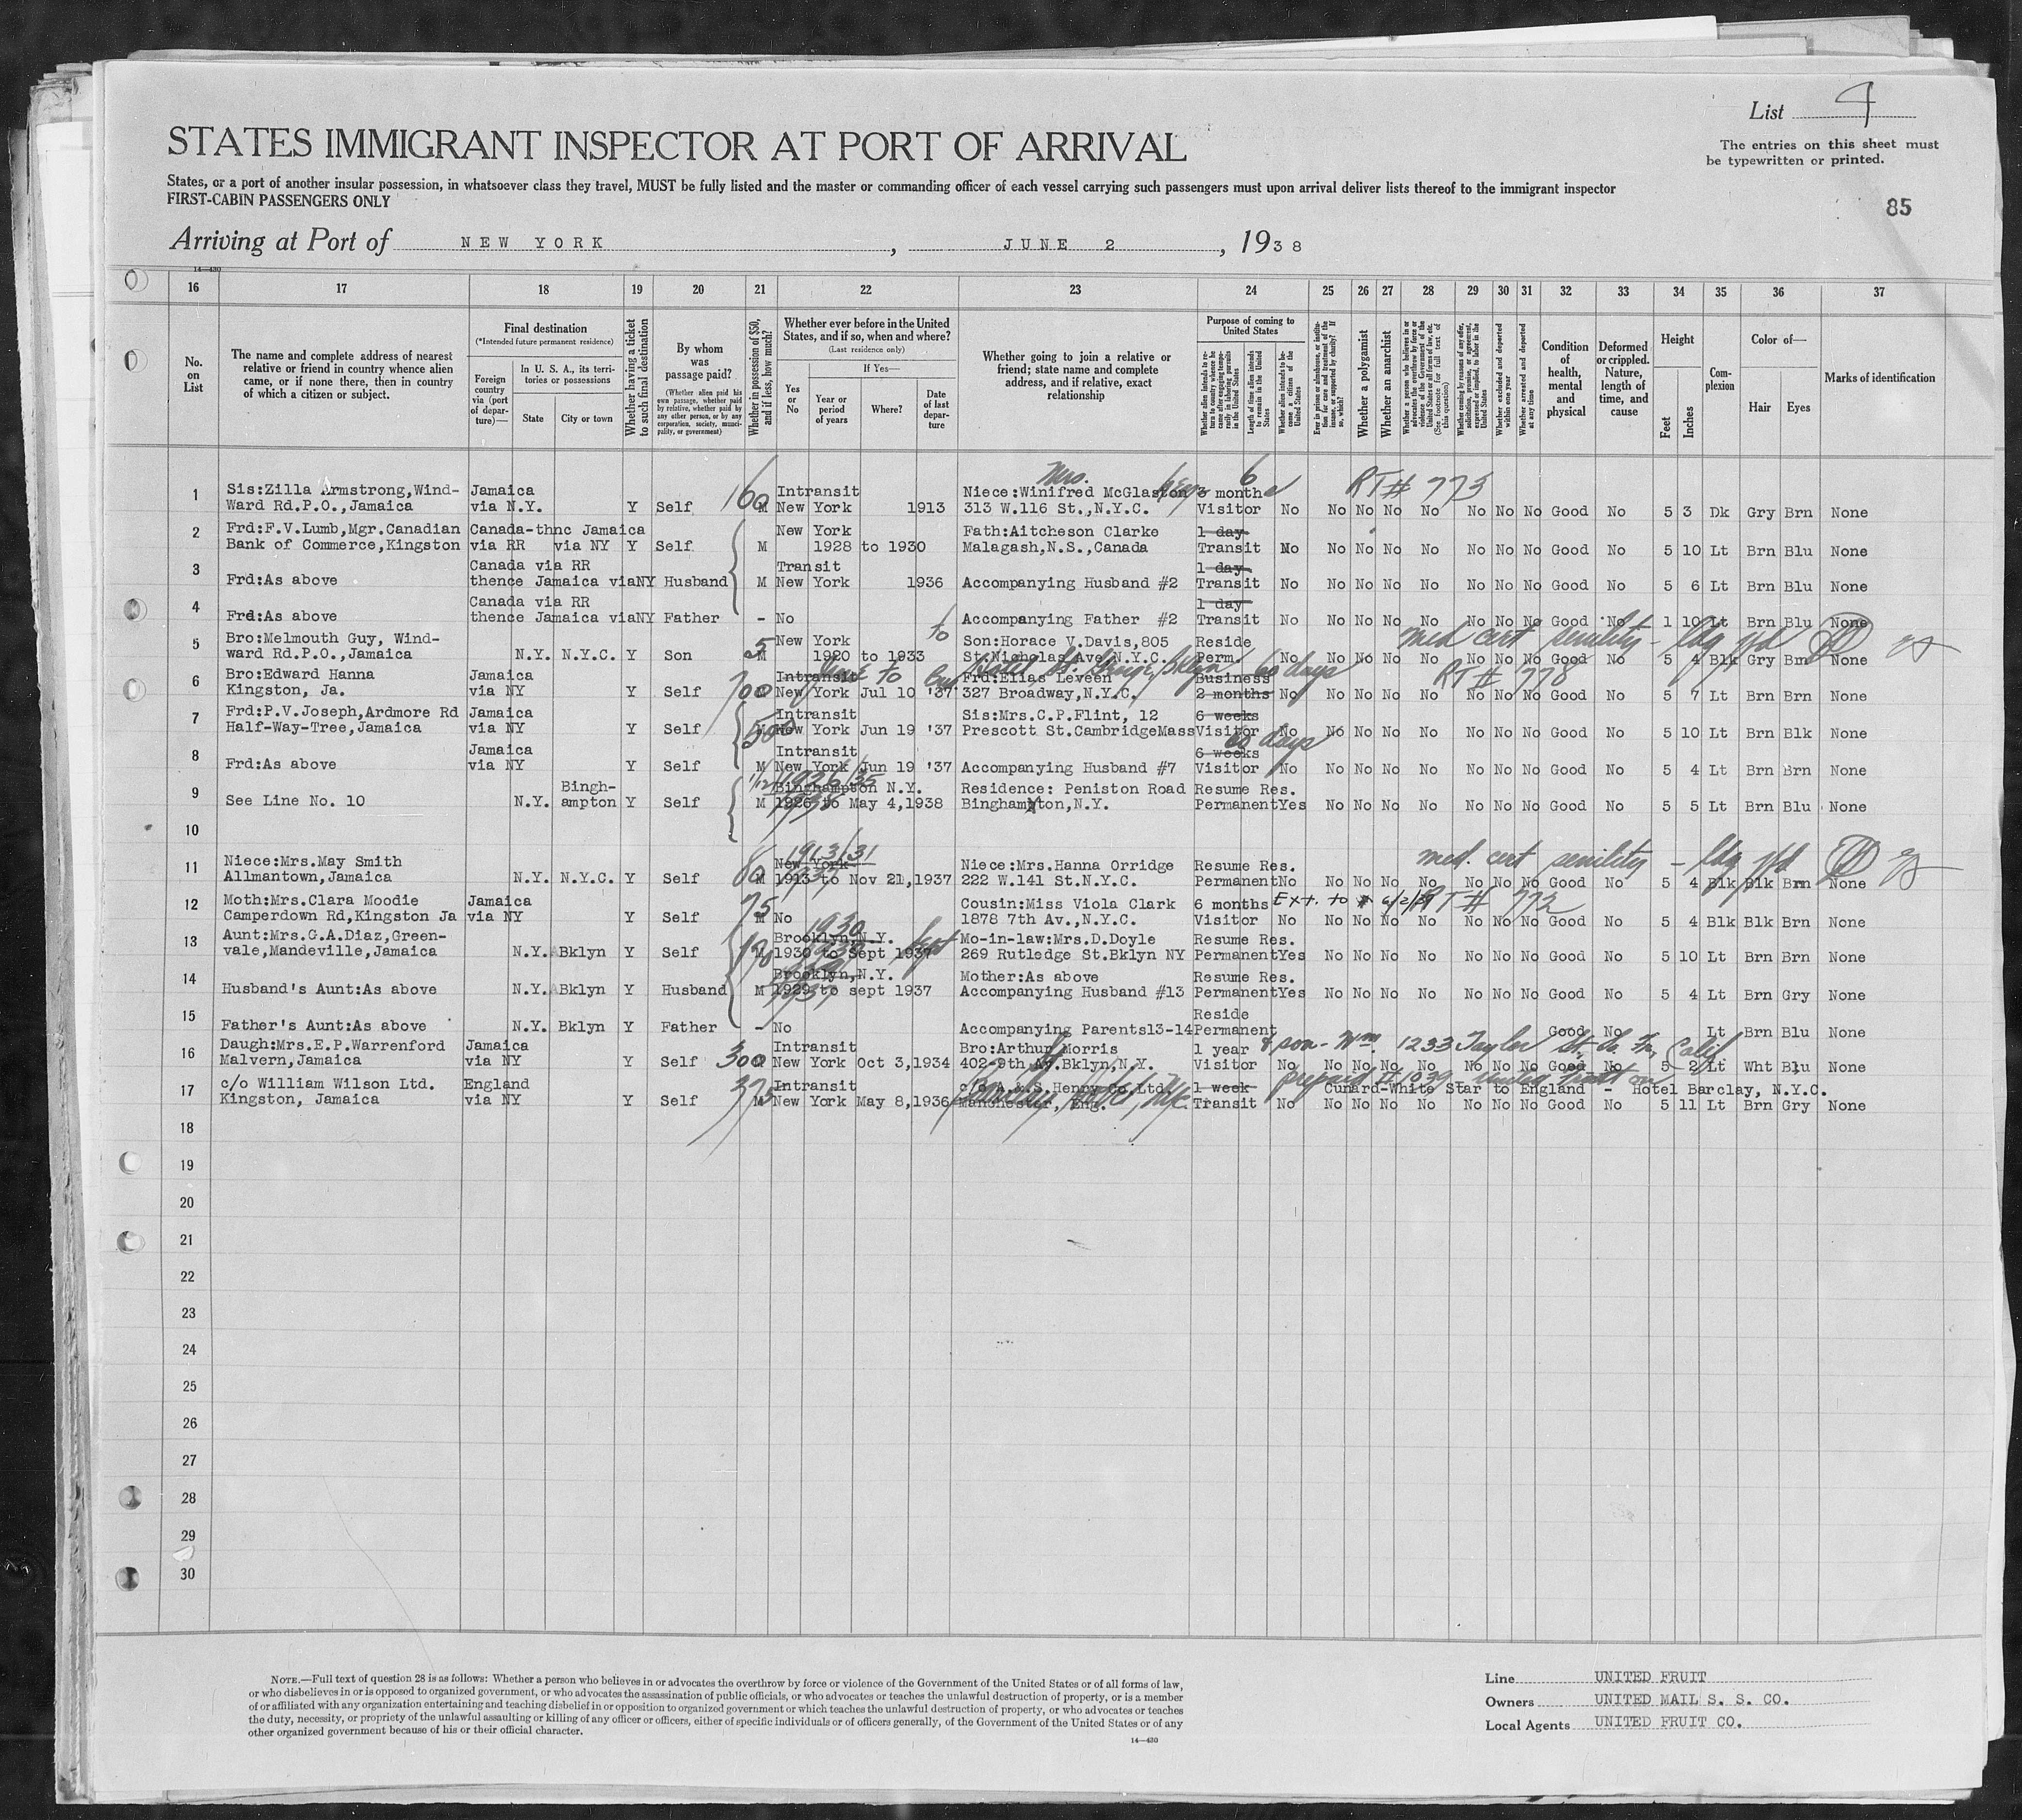 List 4
STATES IMMIGRANT INSPECTOR AT PORT OF ARRIVAL
The entries on this sheet must
be typewritten or printed.
States, or a port of another insular possession, in whatsoever class they travel, MUST be fully listed and the master or commanding officer of each vessel carrying such passengers must upon arrival deliver lists thereof to the immigrant inspector
FIRST-CABIN PASSENGERS ONLY
85
Arriving at Port of NEW YORK, JUNE 2, 1938
14—430
16 17 18 19 20 21 22 23 24 25 26 27 28 29 30 31 32 33 34 35 36 37
No. on List
The name and complete address of nearest relative or friend in country whence alien came, or if none there, then in country of which a citizen or subject.
Final destination
(*Intended future permanent residence)
Foreign country via (port of departure)—
In U. S. A., its territories or possessions
State
City or town
Whether having a ticket to such final destination
By whom was passage paid?
(Whether alien paid his own passage, whether paid by relative, whether paid by any other person, or by any corporation, society, municipality, or government)
Whether in possession of $50, and if less, how much?
Whether ever before in the United States, and if so, when and where?
(Last residence only)
Yes or No
If Yes—
Year or period of years
Where?
Date of last departure
Whether going to join a relative or friend; state name and complete address, and if relative, exact relationship
Purpose of coming to United States
Whether alien intends to return to country whence he came after engaging temporarily in laboring pursuits in the United States
Length of time alien intends to remain in the United States
Whether alien intends to become a citizen of the United States
Ever in prison or almshouse, or institution for care and treatment of the insane, or supported by charity? If so, which?
Whether a polygamist
Whether an anarchist
Whether a person who believes in or advocates the overthrow by force or violence of the Government of the United States or all forms of law, etc. (See footnote for full text of this question)
Whether coming by reasons of any offer, solicitation, promise, or agreement, expressed or implied, to labor in the United States
Whether excluded and deported within one year
Whether arrested and deported at any time
Condition of health, mental and physical
Deformed or crippled. Nature, length of time, and cause
Height
Feet
Inches
Complexion
Color of—
Hair
Eyes
Marks of identification
Mrs. 6 RT# 773
1 Sis:Zilla Armstrong,Wind- Jamaica 60 Intransit Niece:Winifred McGlaston 3 months
Ward Rd.P.O.,Jamaica via N.Y. Y Self M New York 1913 313 W.116 St.,N.Y.C. Visitor No No No No No No No No Good No 5 3 Dk Gry Brn None
2 Frd:F.V.Lumb,Mgr.Canadian Canada-thnc Jamaica New York Fath:Aitcheson Clarke 1 day
Bank of Commerce,Kingston via RR via NY Y Self M 1928 to 1930 Malagash,N.S.,Canada Transit No No No No No No No No Good No 5 10 Lt Brn Blu None
3 Canada via RR Transit 1 day
Frd:As above thence Jamaica viaNY Husband M New York 1936 Accompanying Husband #2 Transit No No No No No No No No Good No 5 6 Lt Brn Blu None
4 Canada via RR 1 day
Frd:As above thence Jamaica viaNY Father - No Accompanying Father #2 Transit No No No No No No No No Good No 1 10 Lt Brn Blu None
med cert senility -
5 Bro:Melmouth Guy, Wind- 5 New York to Son:Horace V.Davis,805 Reside
ward Rd.P.O.,Jamaica N.Y. N.Y.C. Y Son M 1920 to 1933 St.Nicholas Ave,N.Y.C. Perm. No No No No No No No No Good No 5 4 Blk Gry Brn None
Hotel St. George, Bklyn 60 days RT# 778
6 Bro:Edward Hanna Jamaica 700 Intransit Frd:Elias Leveen Business
Kingston, Ja. via NY Y Self New York Jul 10 '37 327 Broadway,N.Y.C. 2 months No No No No No No No No Good No 5 7 Lt Brn Brn None
7 Frd:P.V.Joseph,Ardmore Rd Jamaica 500 Intransit Sis:Mrs.C.P.Flint, 12 6 weeks
Half-Way-Tree,Jamaica via NY Y Self M New York Jun 19 '37 Prescott St.CambridgeMass Visitor No No No No No No No No Good No 5 10 Lt Brn Blk None
60 days
8 Jamaica Intransit 6 weeks
Frd:As above via NY Y Self M New York Jun 19 '37 Accompanying Husband #7 Visitor No No No No No No No No Good No 5 4 Lt Brn Brn None
1926/35
9 Bingh- Binghampton N.Y. Residence: Peniston Road Resume Res.
See Line No. 10 N.Y. ampton Y Self M 1926 to May 4,1938 Binghamton,N.Y. Permanent Yes No No No No No No No Good No 5 5 Lt Brn Blu None
10
1913/31 med. cert senility -
11 Niece:Mrs.May Smith 60 New York Niece:Mrs.Hanna Orridge Resume Res.
Allmantown,Jamaica N.Y. N.Y.C. Y Self M 1913 to Nov 21,1937 222 W.141 St.N.Y.C. Permanent No No No No No No No No Good No 5 4 Blk Blk Brn None
12 Moth:Mrs.Clara Moodie Jamaica 75 Cousin:Miss Viola Clark 6 months Ext. to RT# 772
Camperdown Rd,Kingston Ja via NY Y Self M No 1878 7th Av.,N.Y.C. Visitor No No No No No No No No Good No 5 4 Blk Blk Brn None
1930
13 Aunt:Mrs.G.A.Diaz,Green- Brooklyn,N.Y. Sept Mo-in-law:Mrs.D.Doyle Resume Res.
vale,Mandeville,Jamaica N.Y. Bklyn Y Self M 1930 to Sept 1937 269 Rutledge St.Bklyn NY Permanent Yes No No No No No No No Good No 5 10 Lt Brn Brn None
14 Brooklyn,N.Y. Mother:As above Resume Res.
Husband's Aunt:As above N.Y. Bklyn Y Husband M 1929 to sept 1937 Accompanying Husband #13 Permanent Yes No No No No No No No Good No 5 4 Lt Brn Gry None
15 Reside
Father's Aunt:As above N.Y. Bklyn Y Father - No Accompanying Parents13-14 Permanent Good No Lt Brn Blu None
16 Daugh:Mrs.E.P.Warrenford Jamaica 300 Intransit Bro:Arthur Morris 1 year & son - Wm. 1233 Taylor St., Calif
Malvern,Jamaica via NY Y Self New York Oct 3,1934 402-9th Av.Bklyn,N.Y. Visitor No No No No No No No No Good No 5 2 Lt Wht Blu None
17 c/o William Wilson Ltd. England 375 Intransit c/o A.&S.Henry Co.Ltd 1 week prepaid Cunard-White Star to England - Hotel Barclay, N.Y.C.
Kingston, Jamaica via NY Y Self M New York May 8,1936 Manchester, Eng. Transit No No No No No No No No Good No 5 11 Lt Brn Gry None
18
19
20
21
22
23
24
25
26
27
28
29
30
NOTE.—Full text of question 28 is as follows: Whether a person who believes in or advocates the overthrow by force or violence of the Government of the United States or of all forms of law,
or who disbelieves in or is opposed to organized government, or who advocates the assassination of public officials, or who advocates or teaches the unlawful destruction of property, or is a member
of or affiliated with any organization entertaining and teaching disbelief in or opposition to organized government or which teaches the unlawful destruction of property, or who advocates or teaches
the duty, necessity, or propriety of the unlawful assaulting or killing of any officer or officers, either of specific individuals or of officers generally, of the Government of the United States or of any
other organized government because of his or their official character.
14—430
Line UNITED FRUIT
Owners UNITED MAIL S. S. CO.
Local Agents UNITED FRUIT CO.